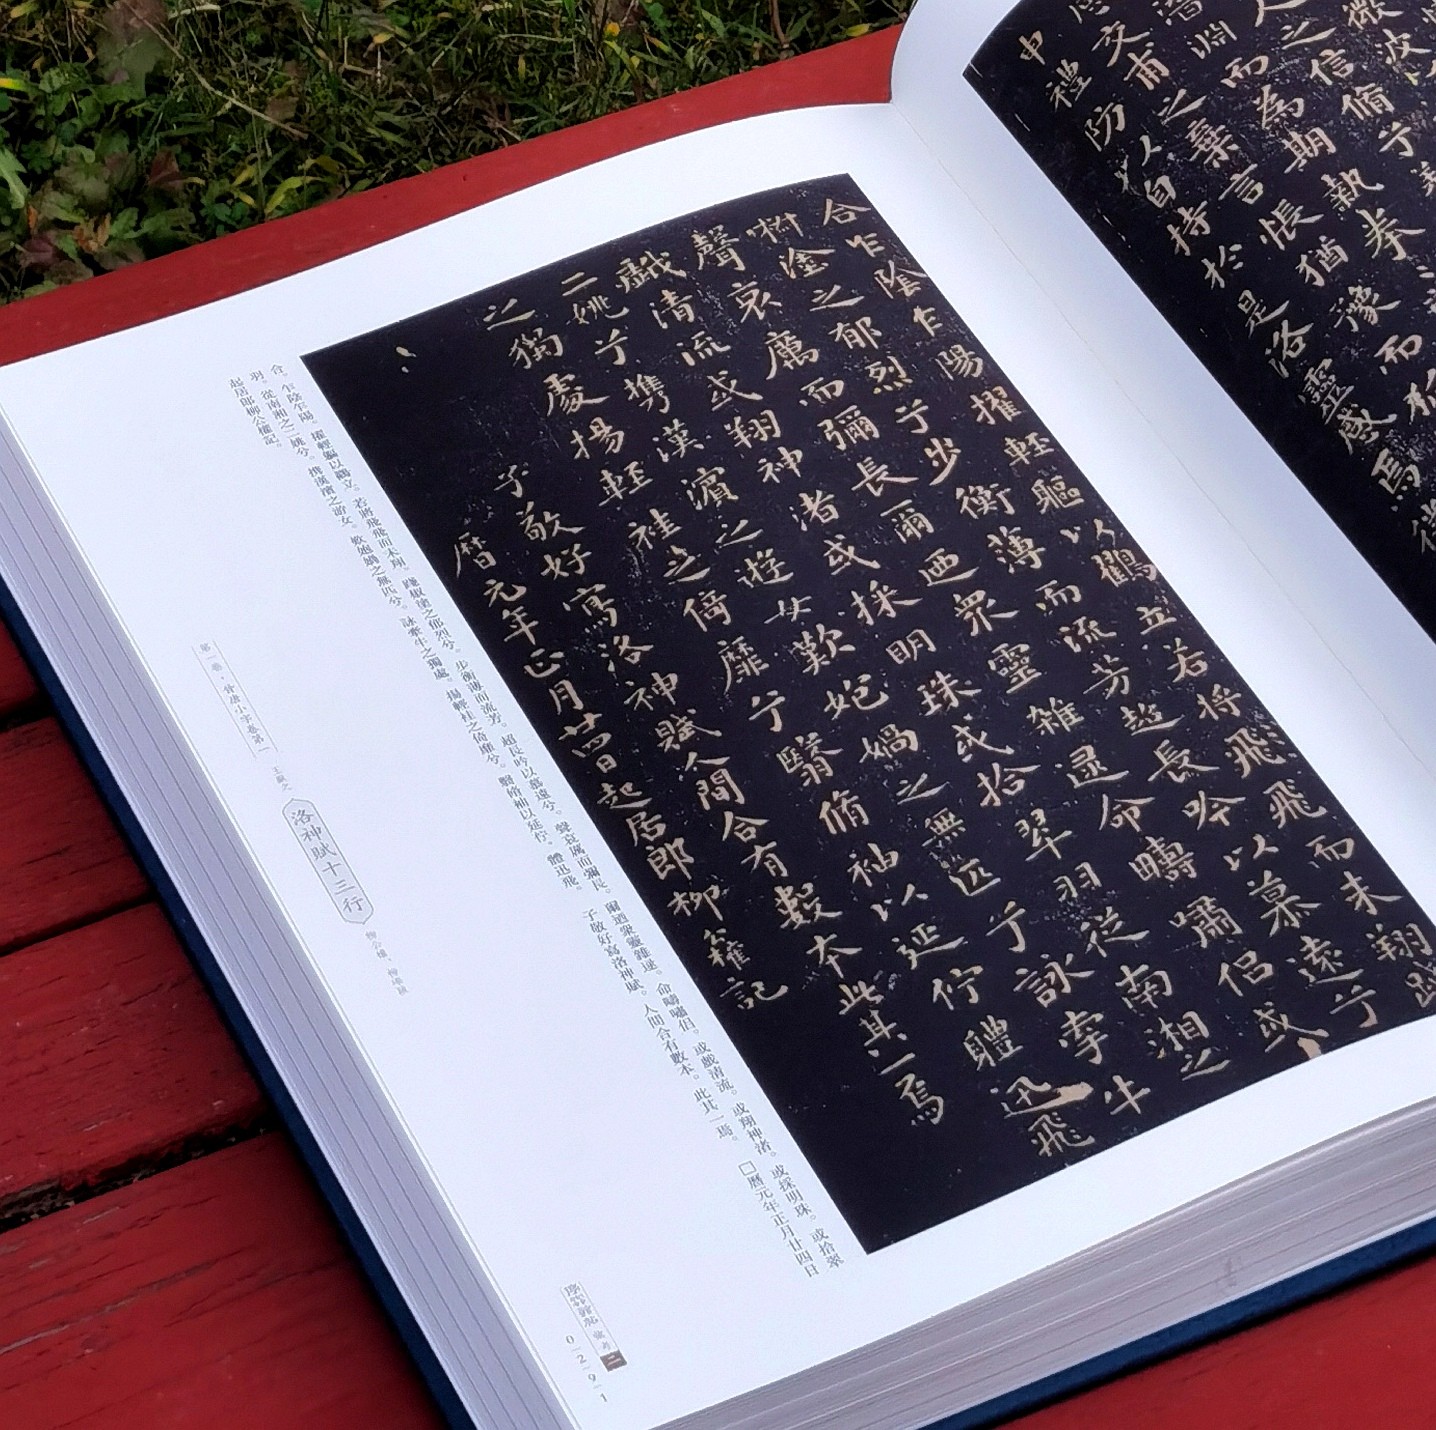 微波
人之信脩兮
潛淵而為期執拳
交甫之棄言悵猶豫而
申禮防以自持於是洛靈感焉徙
合乍陰乍陽擢輕軀以鶴立若将飛飛而未翔踐
椒塗之郁烈兮步衡薄而流芳超長吟以慕遠兮
聲哀厲而彌長爾迺眾靈雜遝命疇嘯侶或
戲清流或翔神渚或採明珠或拾翠羽從南湘之
二姚兮携漢濱之遊女歎匏媧之無匹兮詠牽牛
之獨處揚輕袿之倚靡兮翳脩袖以延佇體迅飛
子敬好寫洛神賦人間合有數本此其一焉
曆元年正月廿四日起居郎柳公權記
合。乍陰乍陽。擢輕軀以鶴立。若將飛飛而未翔。踐椒塗之郁烈兮。步衡薄而流芳。超長吟以慕遠兮。聲哀厲而彌長。爾迺眾靈雜遝。命疇嘯侶。或戲清流。或翔神渚。或採明珠。或拾翠
羽。從南湘之二姚兮。攜漢濱之游女。歎匏媧之無匹兮。詠牽牛之獨處。揚輕袿之倚靡兮。翳脩袖以延佇。體迅飛。 子敬好寫洛神賦。人間合有數本。此其一焉。 □曆元年正月廿四日
起居郎柳公權記。
第一卷・晉唐小字卷第一
王獻之
洛神賦十三行
二
0291